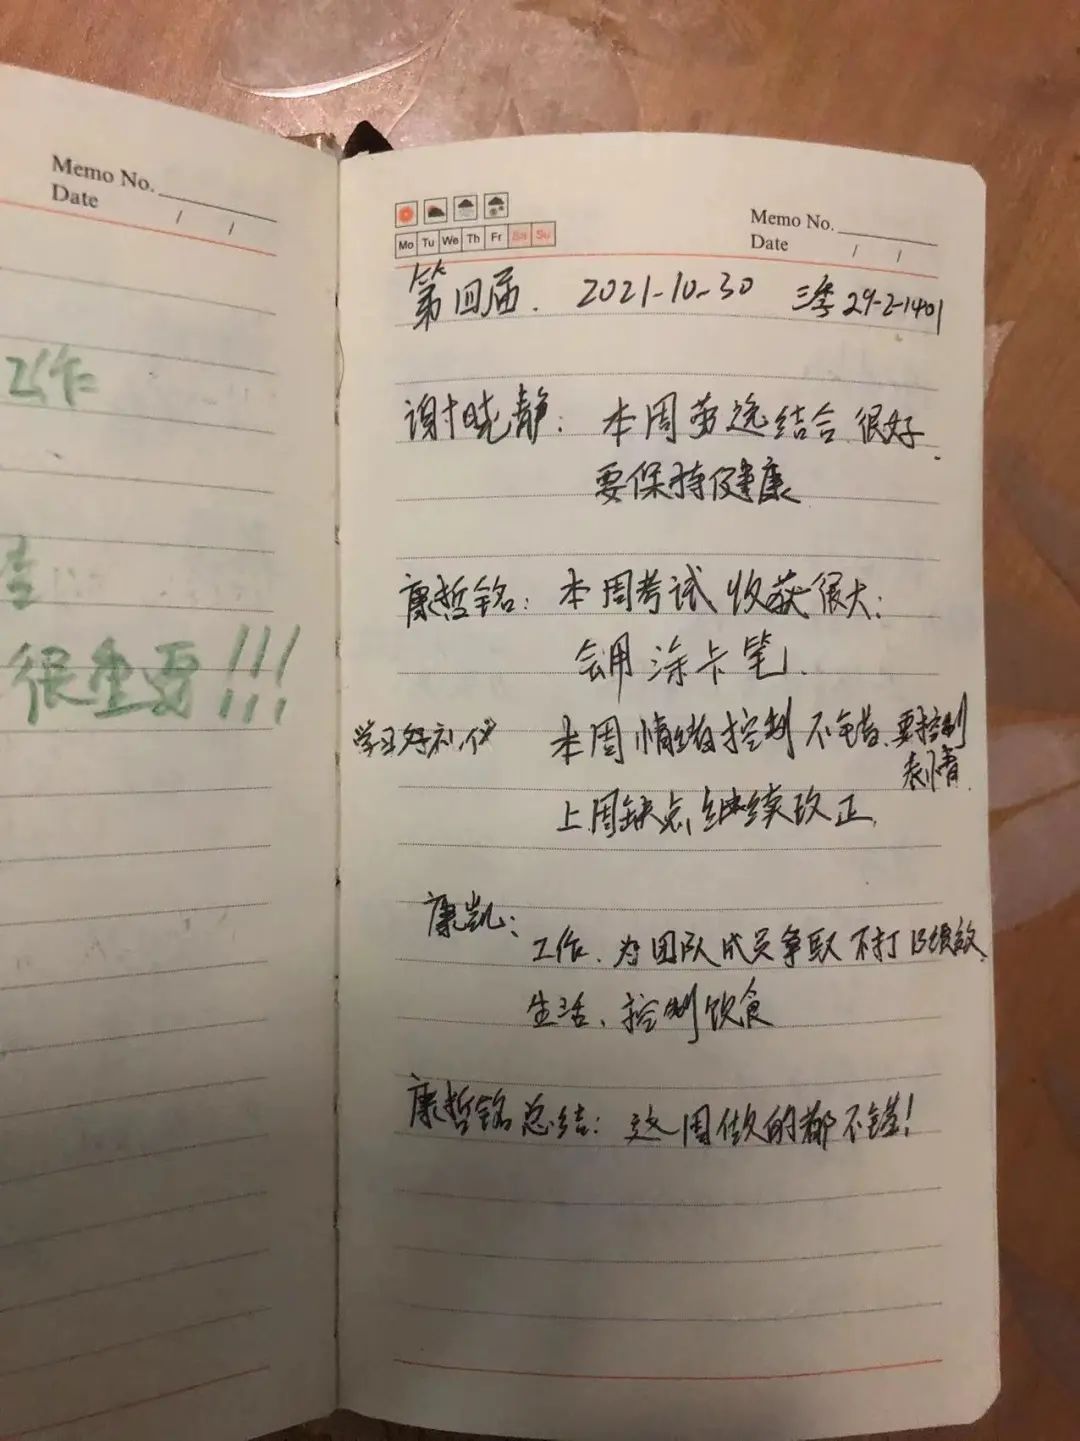 Memo No.
Date / /
工作
很重要!!!
Mo Tu We Th Fr Sa Su
Memo No.
Date / /
第四届. 2021-10-30 三季 29-2-1401
谢晓静: 本周劳逸结合很好.
要保持健康
康哲铭: 本周考试收获很大;
会用涂卡笔.
学习好礼仪 本周情绪控制不错.要控制
表情.
上周缺点继续改正.
康凯:
工作、为团队成员争取不打B绩效.
生活、控制饮食
康哲铭总结: 这周做的都不错!